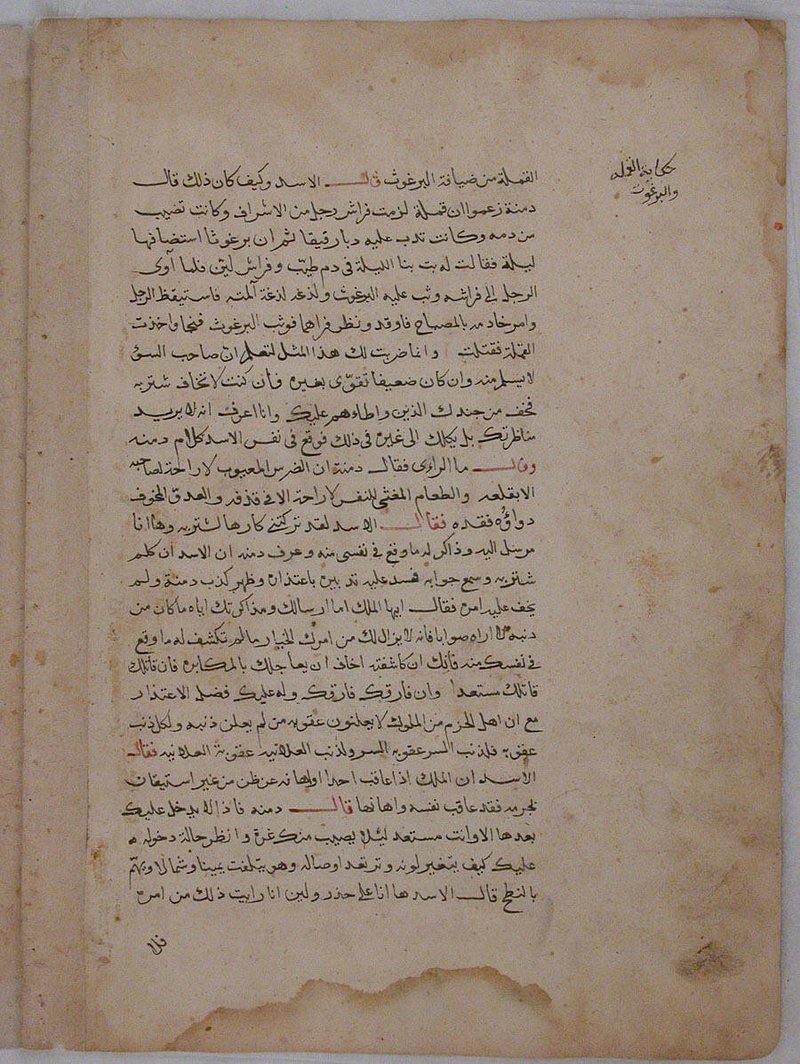 حكاية القمله
والبرغوث
القملة من ضيافة البرغوث قال الاسد وكيف كان ذلك قال
دمنة زعموا ان قملة لزمت فراش رجل من الاشراف وكانت تصيب
من دمه وكانت تدب عليه دبا رقيقا ثم ان برغوثا استضافها
ليلة فقالت له بت بنا الليلة فى دم طيب وفراش لين فلما آوى
الرجل الى فراشه وثب عليه البرغوث ولذعه لذعة آلمته فاستيقظ الرجل
وامر خادمه بالمصباح فاوقد ونظر فراهما فوثب البرغوث فنجا واخذت
القملة فقتلت وانما ضربت لك هذا المثل لتعلم ان صاحب السؤ
لا يسلم منه وان كان ضعيفا تقوى بغيره فان كنت لا تخاف شتربه
فخف من جندك الذين واطاءهم عليك وانا اعرف انه لا يريد
مناظرتك بل يكلك الى غيره فى ذلك فوقع فى نفس الاسد كلام دمنه
وقال ما الراءى فقال دمنة ان الضرس المعيوب لا راحة لصاحبه
الا بقلعه والطعام المغثى للنفس لا راحة الا فى قذفه والعدو المخوف
دواؤه فقده فقال الاسد لقد تركتنى كارها لشتربه وها انا
مرسل اليه وذاكر له ما وقع فى نفسى منه وعرف دمنه ان الاسد ان كلم
شتربه وسمع جوابه فسد عليه تدبيره باعتذاره وظهر كذب دمنة ولم
يخف عليه امره فقال ايها الملك اما ارسالك ومذاكرتك اياه ما كان من
ذنبه فلا اراه صوابا فانه لا يزال لك من امرك الخيار ما لم تكشف له ما وقع
فى نفسك منه فانك ان كاشفته اخاف ان يعاجلك بالمكابره فان قاتلك
قاتلك مستعدا وان فارقك فارقك وله عليك فضل الاعتذار
مع ان اهل الحزم من الملوك لا يعلنون عقوبه من لم يعلن ذنبه ولكل ذنب
عقوبه فلذنب السر عقوبه السر ولذنب العلانيه عقوبة العلانيه فقال
الاسد ان الملك اذا عاقب احدا او اهانه عن ظن من غير استيقان
لجرمه فقد عاقب نفسه واهانها قال دمنه فاذا لا يدخل عليك
بعدها الا وانت مستعد ليلا يصيب منك غرة وانظر حالة دخوله
عليك كيف يتغير لونه وترتعد اوصاله وهو يتلفت يمينا وشمالا ويهتم
بالنطح قال الاسد ها انا على حذر ولين انا رايت ذلك من امره